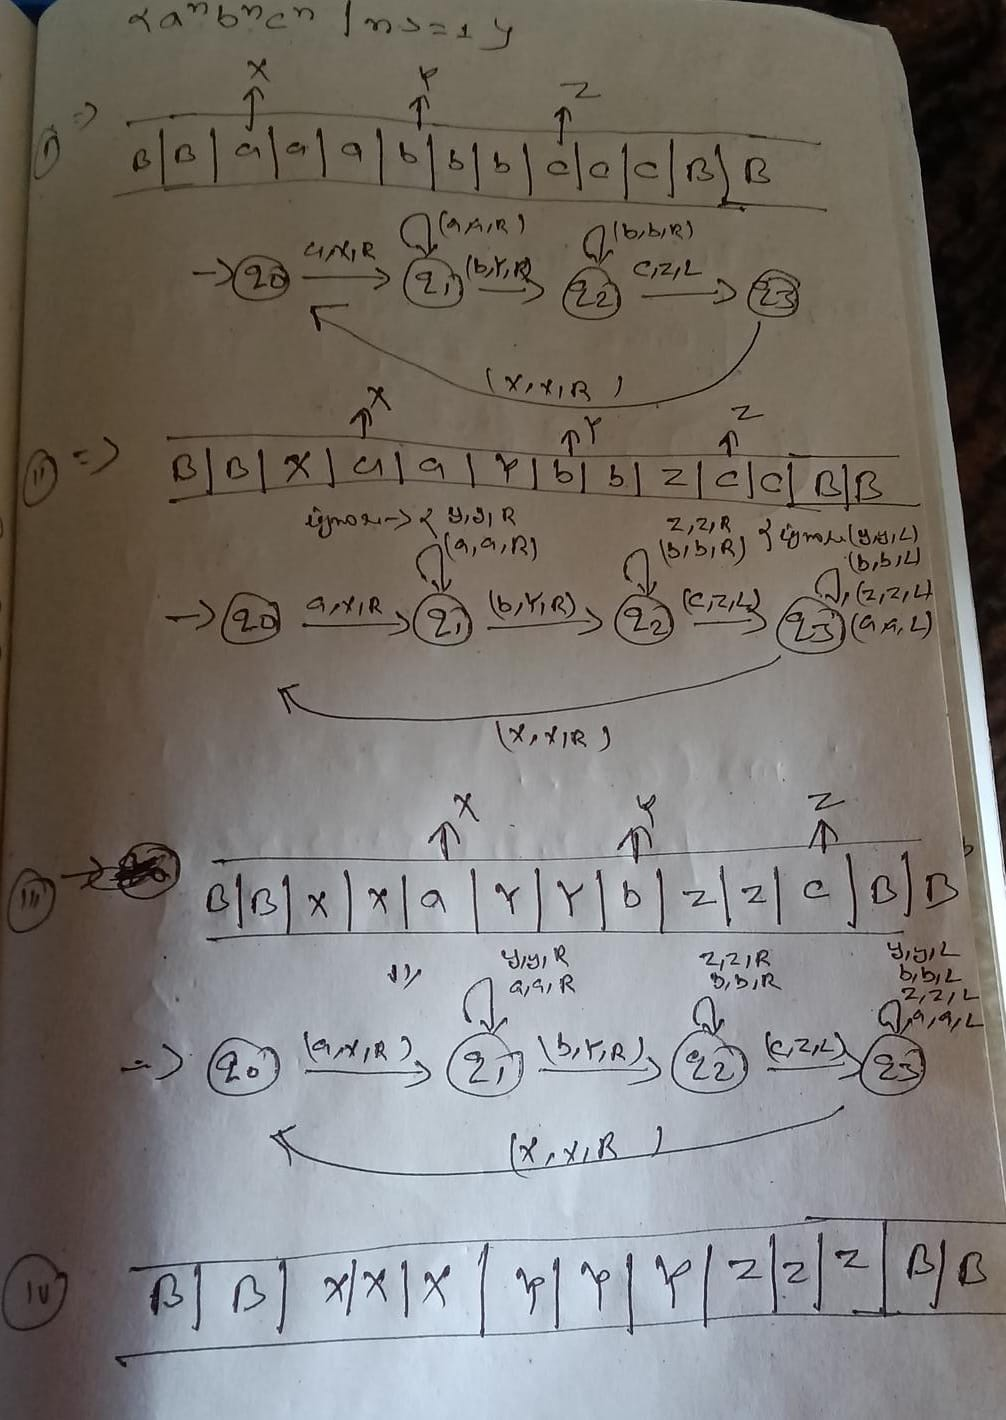 {aⁿbⁿcⁿ | n>=1}
X Y Z
(i) => B|B|a|a|a|b|b|b|c|c|c|B|B
(a,a,R) (b,b,R)
→ q0 a,x,R q1 (b,Y,R) q2 c,z,L q3
(x,x,R)
X Y Z
(ii) => B|B|X|a|a|Y|b|b|z|c|c|B|B
ignore → { y,y,R z,z,R } ignore (y,y,L)
(a,a,R) (b,b,R) (b,b,L)
(z,z,L)
→ q0 a,x,R q1 (b,Y,R) q2 (c,z,L) q3 (a,a,L)
(x,x,R)
X Y Z
(iii) → B|B|X|X|a|Y|Y|b|z|z|c|B|B
y,y,R z,z,R y,y,L
a,a,R b,b,R b,b,L
z,z,L
a,a,L
=> q0 (a,x,R) q1 (b,Y,R) q2 (c,z,L) q3
(x,x,R)
(iv) B|B|X|X|X|Y|Y|Y|z|z|z|B|B